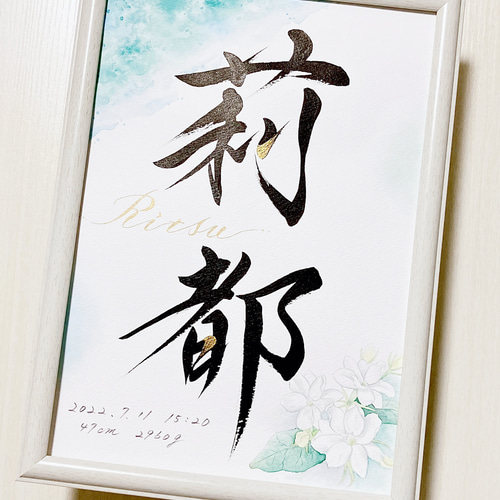 莉都
Ritsu
2022.7.11 15:20
47cm 2960g